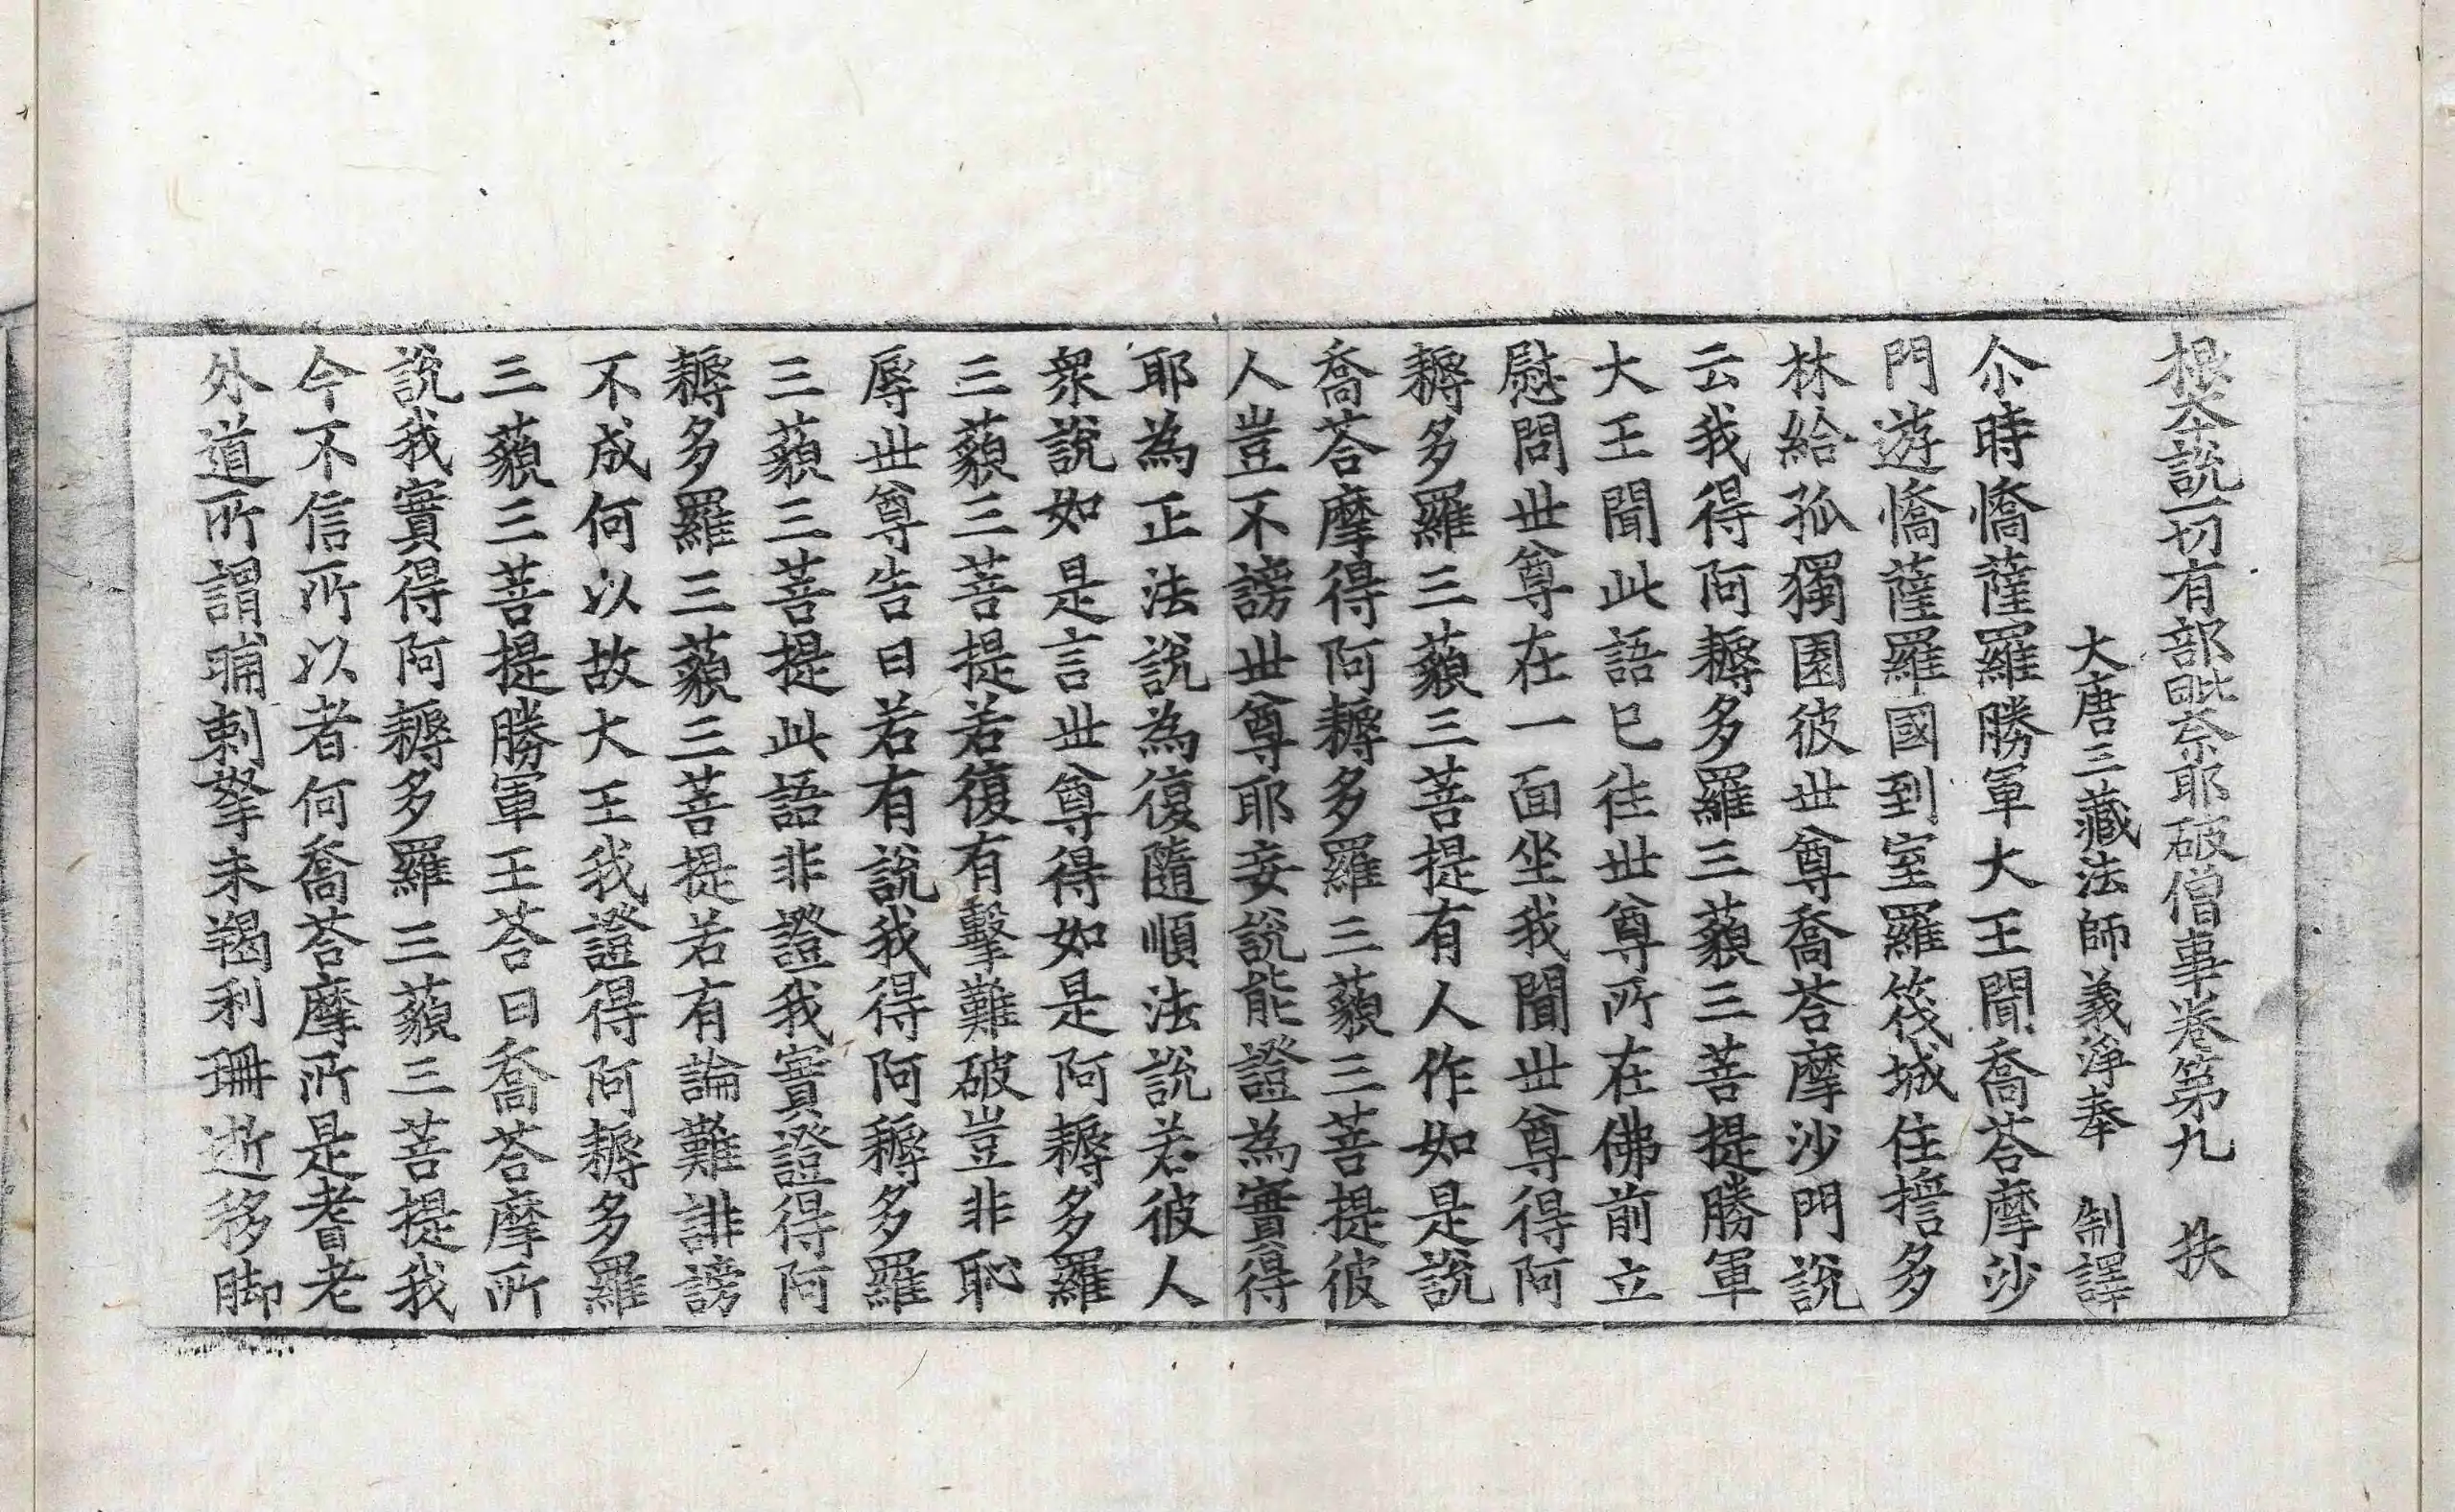 根本說一切有部毗柰耶破僧事卷第九 扶
大唐三藏法師義淨奉 制譯
尒時憍薩羅勝軍大王聞喬荅摩沙
門遊憍薩羅國到室羅筏城住擔多
林給孤獨園彼世尊喬荅摩沙門說
云我得阿耨多羅三藐三菩提勝軍
大王聞此語已往世尊所在佛前立
慰問世尊在一面坐我聞世尊得阿
耨多羅三藐三菩提有人作如是說
喬荅摩得阿耨多羅三藐三菩提彼
人豈不謗世尊耶妄說能證為實得
耶為正法說為復隨順法說若彼人
衆說如是言世尊得如是阿耨多羅
三藐三菩提若復有擊難破豈非恥
辱世尊告曰若有說我得阿耨多羅
三藐三菩提此語非證我實證得阿
耨多羅三藐三菩提若有論難誹謗
不成何以故大王我證得阿耨多羅
三藐三菩提勝軍王荅曰喬荅摩所
說我實得阿耨多羅三藐三菩提我
今不信所以者何喬荅摩所是耆老
外道所謂晡剌拏末羯利珊逝移脚